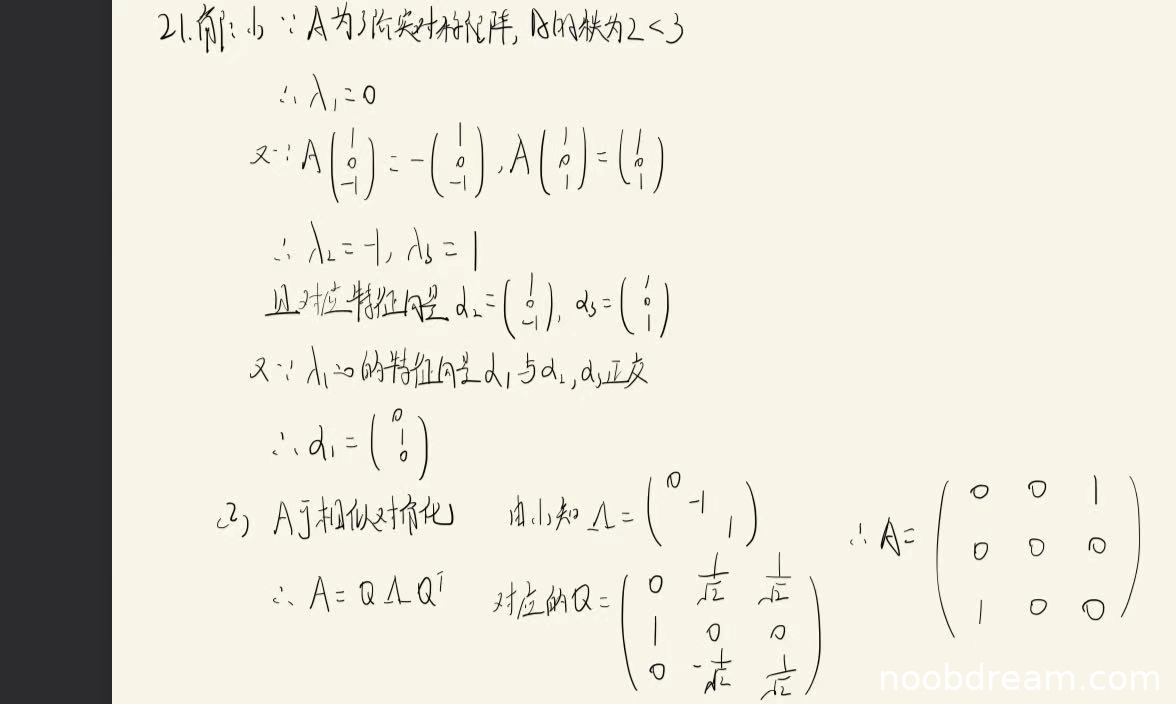 21.解:(1) ∵ A为3阶实对称矩阵, A的秩为2<3
∴ λ₁=0
又∵ A(1 0 -1) = -(1 0 -1), A(1 0 1) = (1 0 1)
∴ λ₂=-1, λ₃=1
且对应特征向量 α₂=(1 0 -1), α₃=(1 0 1)
又∵ λ₁=0的特征向量α₁与α₂,α₃正交
∴ α₁=(0 1 0)
(2) A可相似对角化 由(1)知 Λ=(0 -1 1)
∴ A=QΛQᵀ 对应的Q=(0 1/√2 1/√2
1 0 0
0 -1/√2 1/√2)
∴ A=(0 0 1
0 0 0
1 0 0)
noobdream.com